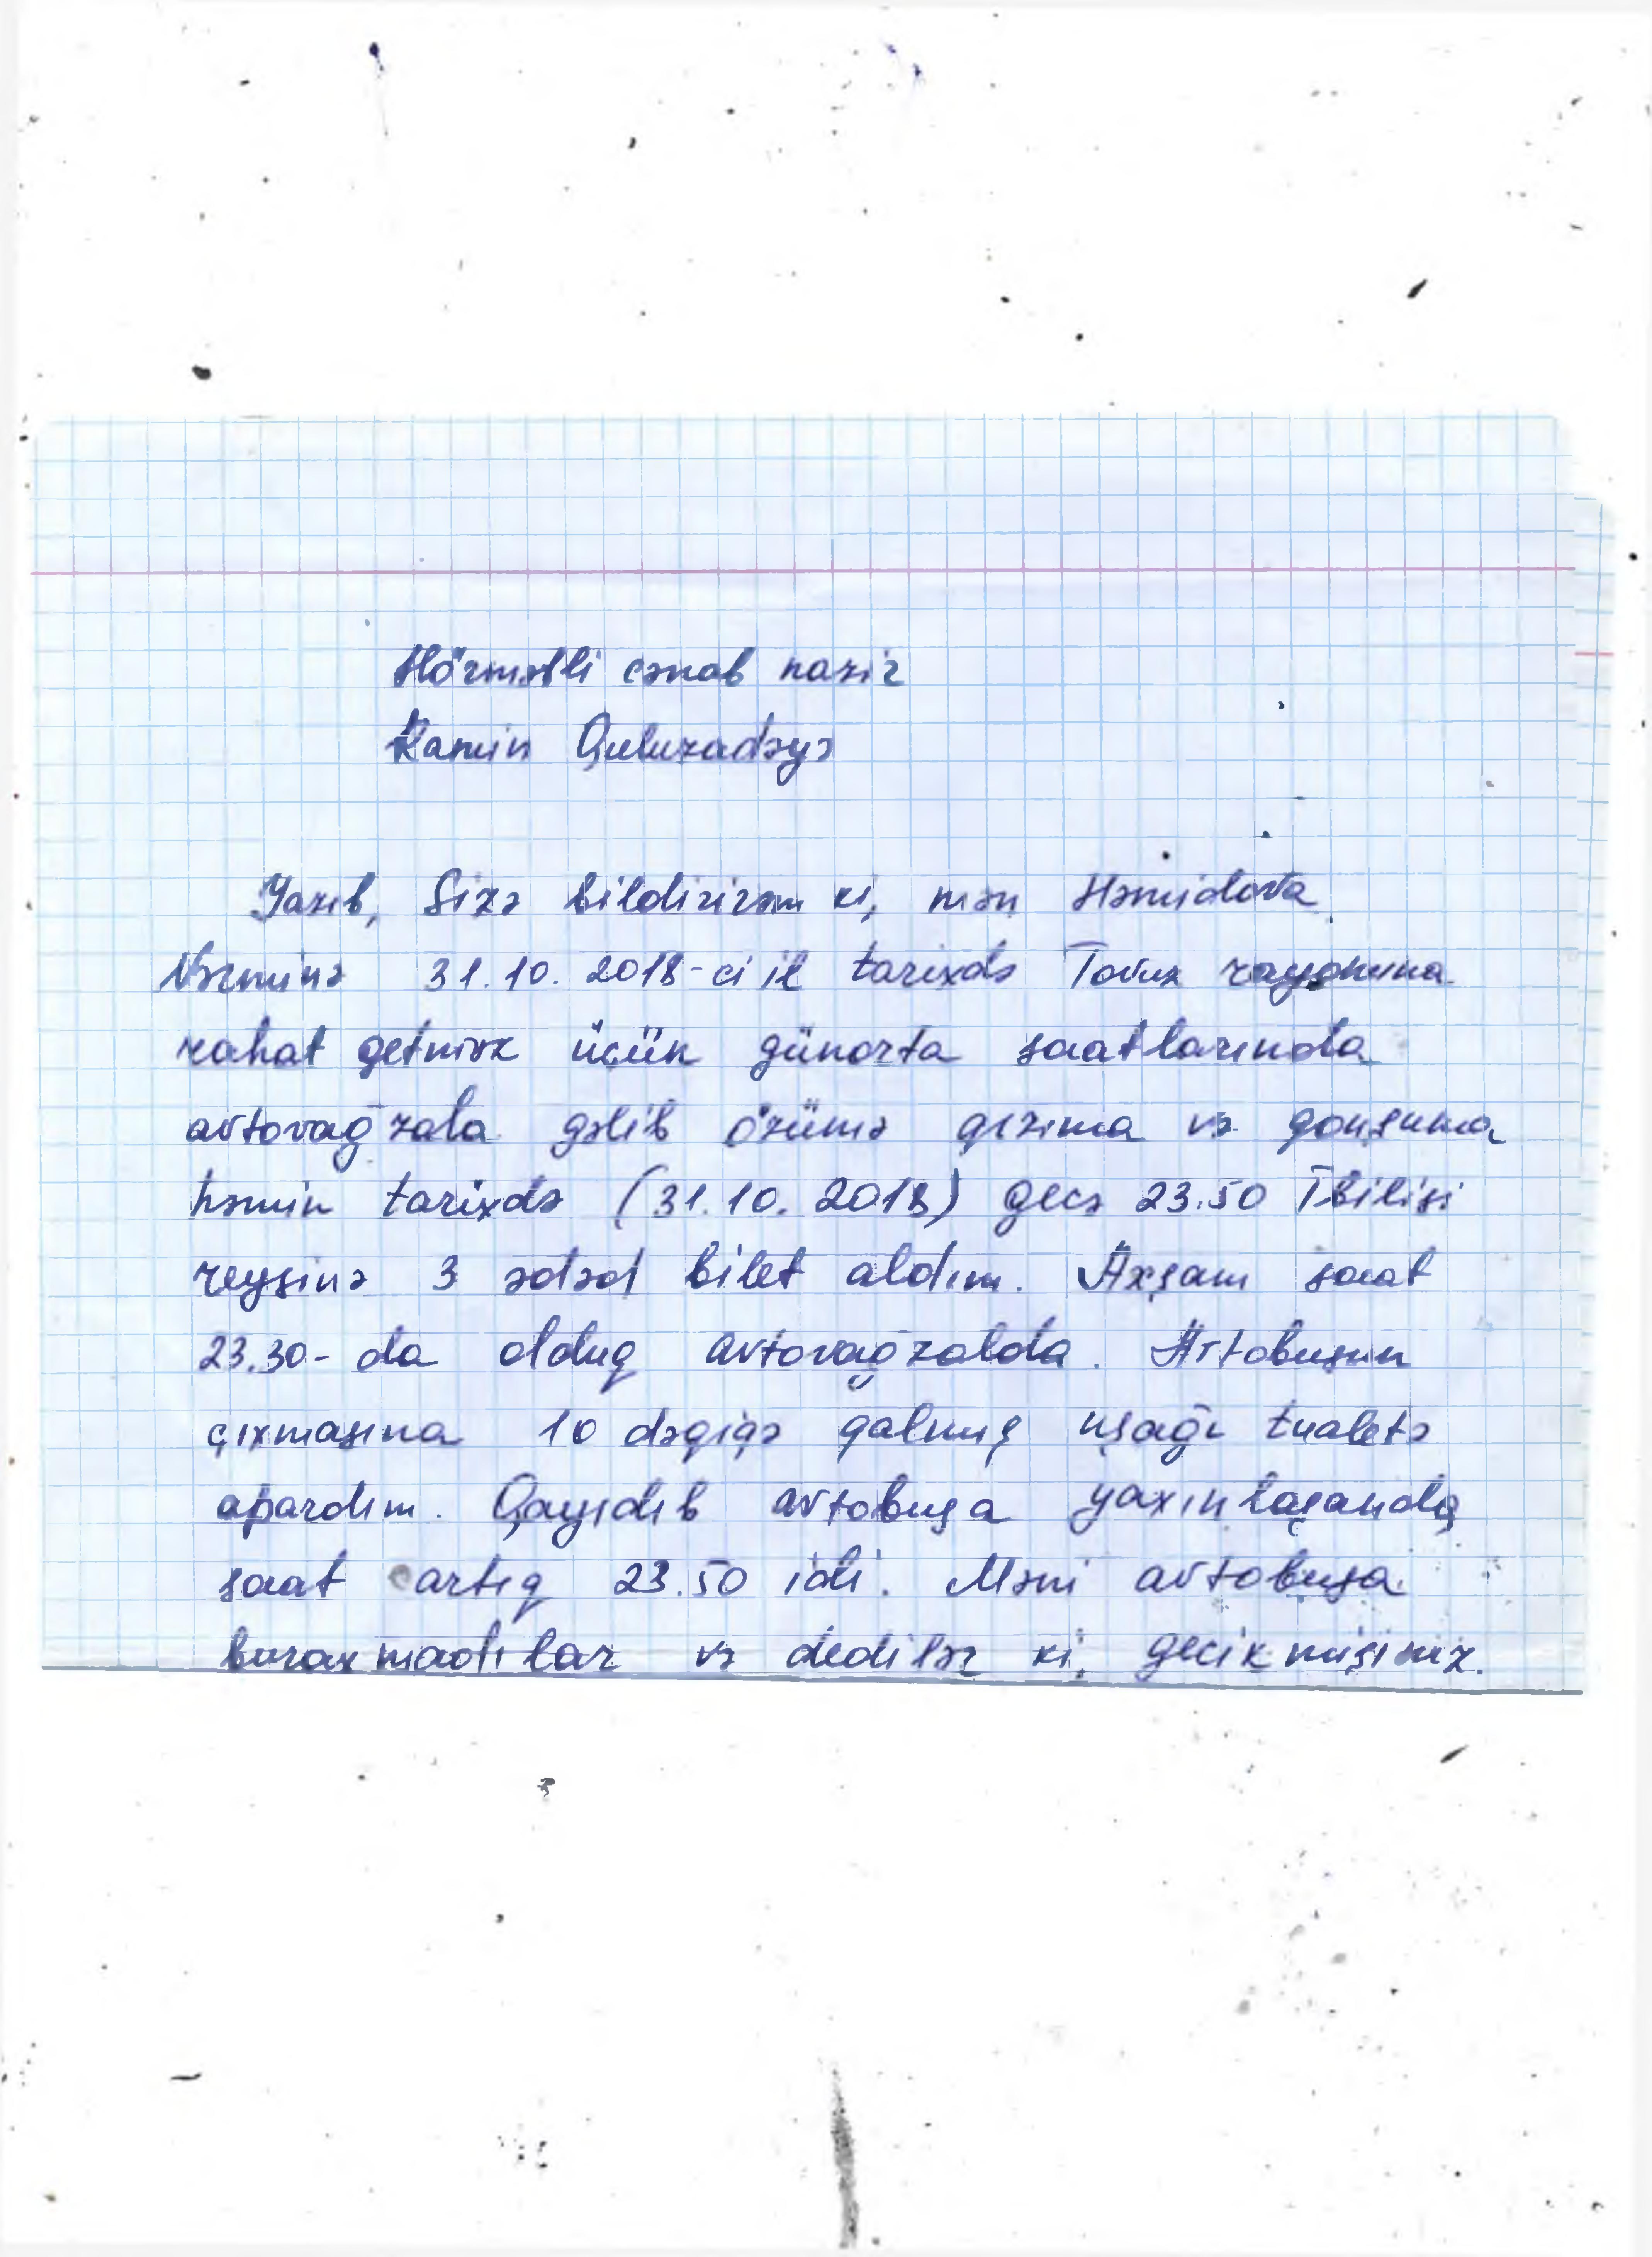 Hörmətli cənab nazir
Ramin Quluzadəyə
Yazıb, Sizə bildirirəm ki, mən Həmidova
Nərminə 31.10.2018-ci il tarixdə Tovuz rayonuna
rahat getmək üçün günorta saatlarında
avtovağzala gəlib özümə qızıma və qonşuma
həmin tarixdə (31.10.2018) gecə 23.50 Tbilisi
reysinə 3 ədəd bilet aldım. Axşam saat
23.30-da olduq avtovağzalda. Avtobusun
çıxmasına 10 dəqiqə qalmış uşağı tualetə
apardım. Qayıdıb avtobusa yaxınlaşanda
saat artıq 23.50 idi. Məni avtobusa
buraxmadılar və dedilər ki, gecikmisiniz.